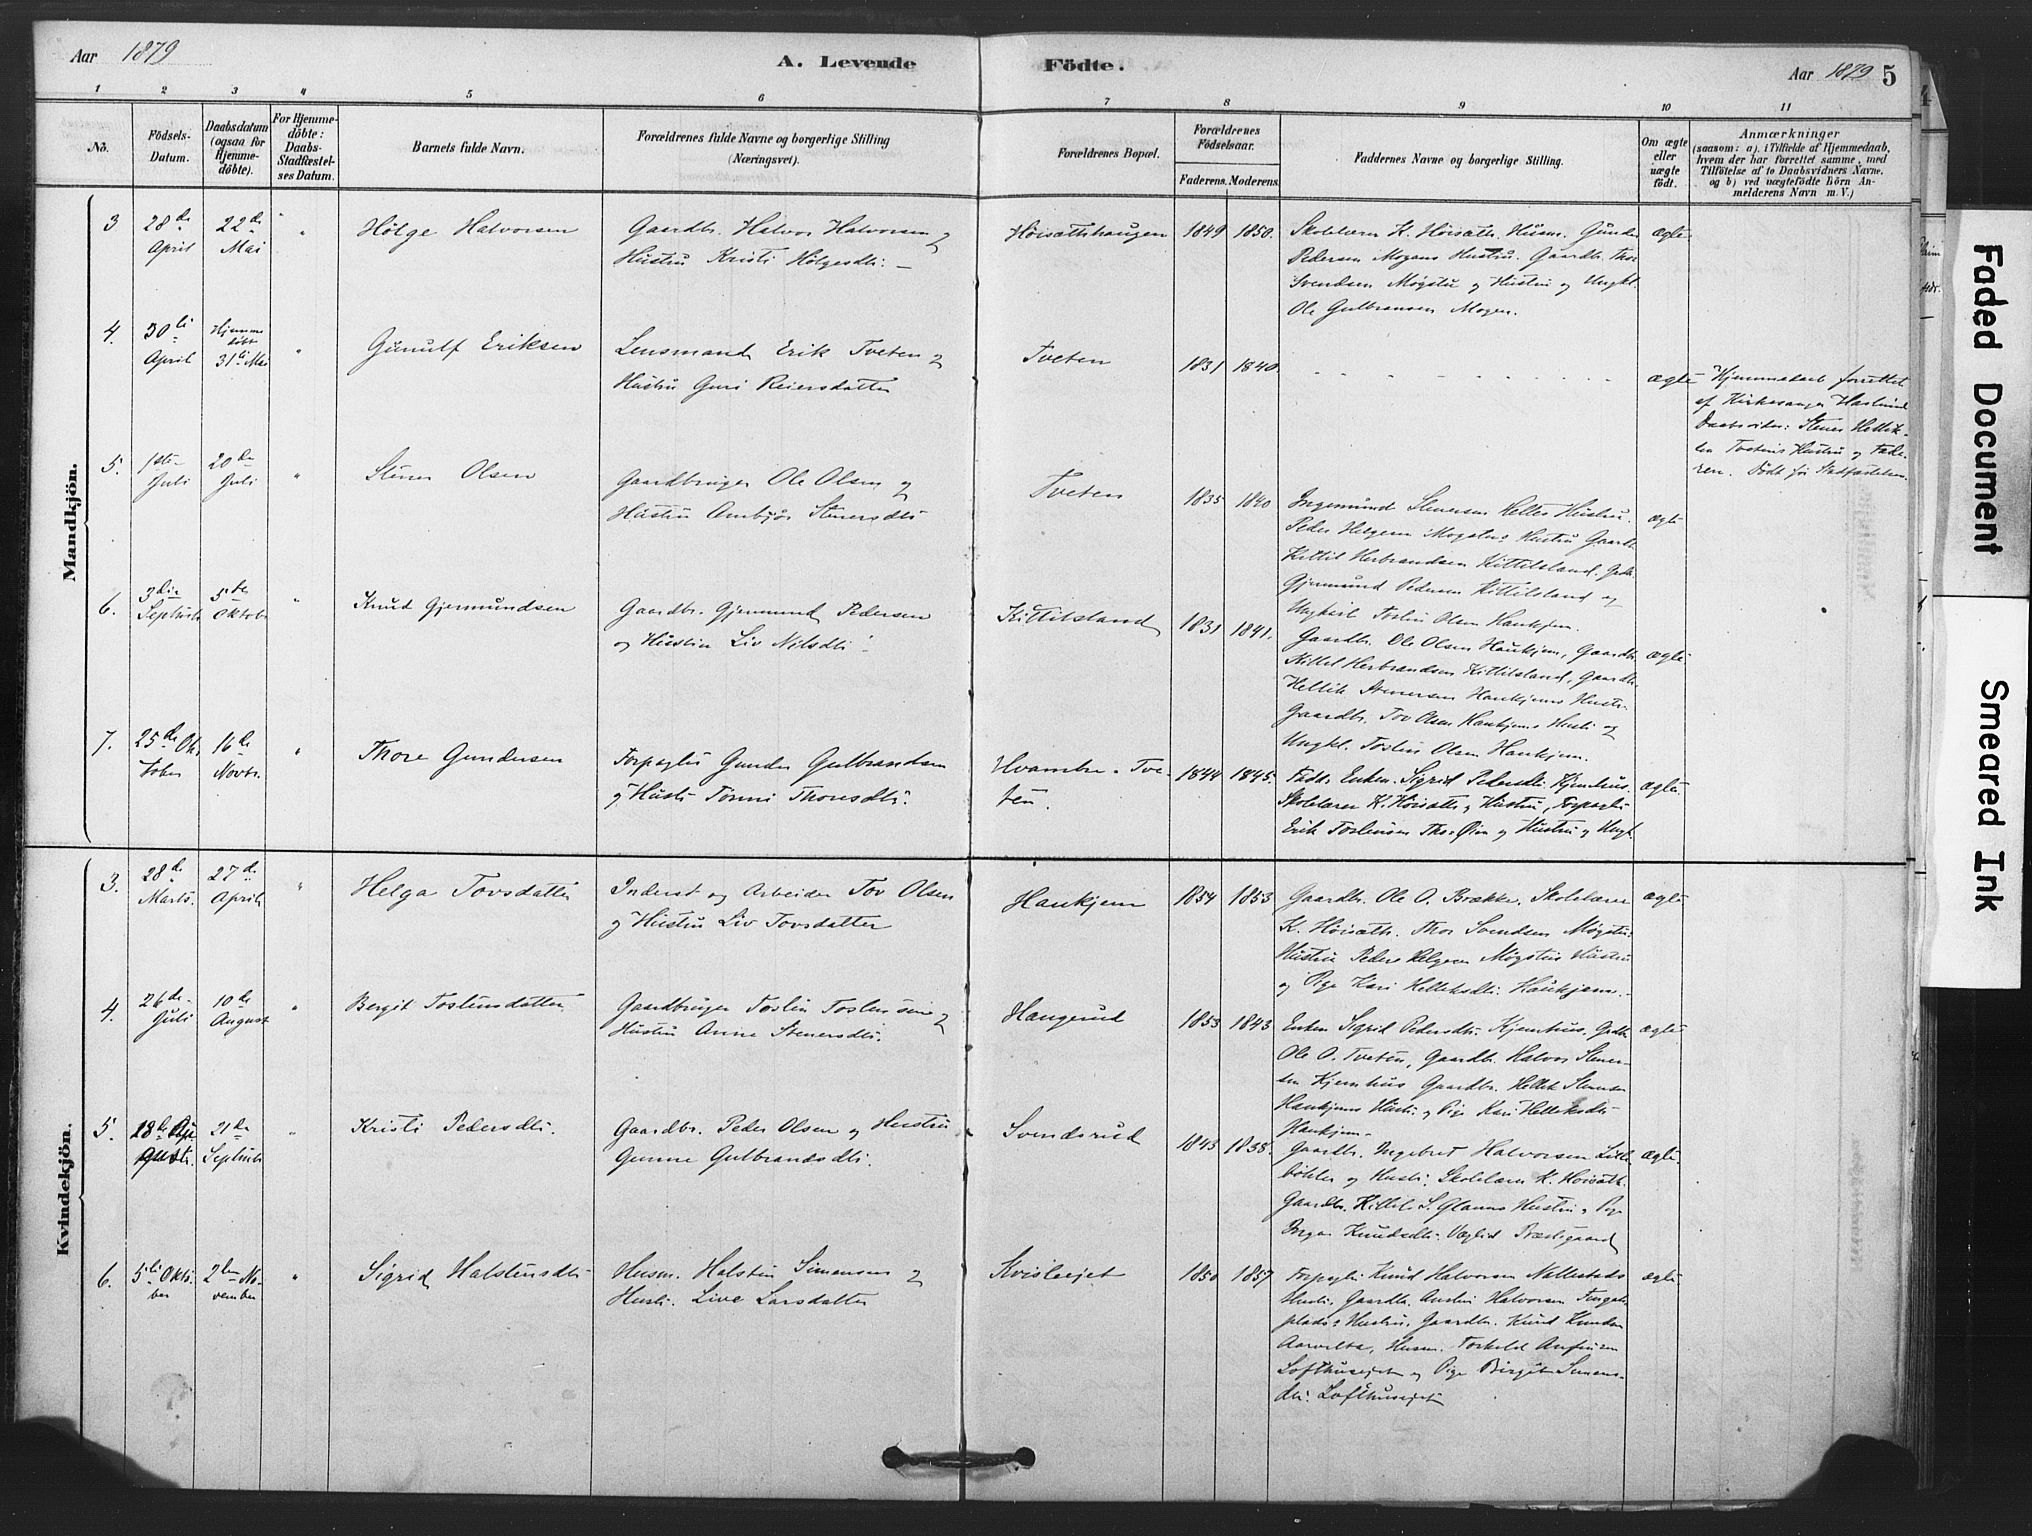 Aar 1879
A. Levende Födte.
Aar 1879 5
1 2 3 4 5 6 7 8 9 10 11
No.
Födsels-Datum.
Daabsdatum (ogsaa for Hjemme-döbte).
For Hjemme-döbte: Daabs-Stadfæstel-ses Datum.
Barnets fulde Navn.
Forældrenes fulde Navne og borgerlige Stilling (Næringsvei).
Forældrenes Bopæl.
Forældrenes Födselsaar.
Faderens. Moderens.
Faddernes Navne og borgerlige Stilling.
Om ægte eller uægte födt.
Anmærkninger
(saasom: a). i Tilfælde af Hjemmedaab,
hvem der har forrettet samme, med
Tilföielse af to Daabsvidners Navne.
og b) ved uægtefödte Börn An-
melderens Navn m. V.)
Mandkjön.
3 28de April 22de Mai " Hølge Halvorsen
Gaardbr. Halvor Halvorsen og
Hustru Kristi Hølgesdtr. –
Høisæthhaugen 1849 1850.
Skolelærer K. Høisæth, Husm. Gunder
Pedersen Mogens Hustru. Gaardbr. Thor
Svendsen Møgstu og Hustru og Ungkl.
Ole Gulbransen Mogen.
ægte
4. 30te April Hjemme døbt 31te Mai " Gunulf Eriksen
Lensmand Erik Tveten og
Hustru Guri Reiersdatter
Tveten 1831 1840.
ægte
Hjemmedaab forrettet
af Kirkesanger Haslund
Daabsvidner: Stener Hellik-
sen Tvetens Hustru og Fade-
ren. Døde før Stadfæstelsen.
5. 1ste Juli 20de Juli " Stener Olsen
Gaardbruger Ole Olsen og
Hustru Ambjør Stenersdtr
Tveten 1835 1840
Ingemund Stenersen Helles Hustru.
Peder Helgesen Mogstus Hustru Gaardb.
Kittil Herbrandsen Kittilsland, Grdbr.
Gjermund Pedersen Kittilsland og
Ungkarl Tostein Olsen Haukjem.
ægte
6. 3die Septbr 5te Oktobr " Knud Gjermundsen
Gaardbr. Gjermund Pedersen
og Hustru Liv Nilsdtr.
Kittilsland 1831 1841.
Gaardbr. Ole Olsen Haukjem, Gaardbr.
Kittel Herbrandsen Kittilsland, Gaardbr.
Hellik Stenersen Haukjems Hustru
Gaardbr. Tov Olsen Haukjems Hustr. og
Ungkl. Tostein Olsen Haukjem.
ægte
7. 25de Oktober 16de Novbr. " Thore Gundersen
Forpagter Gunder Gulbrandsen
og Hustr. Tonni Thoresdtr.
Hvambre-Tve-
ten.
1844 1845.
Fadd. Enken Sigrid Pedersdtr. Kjemhus.
Skolelærer K. Høisæth og Hustru, Forpagter
Erik Toslensen Thorøien og Hustru og Ungk.
ægte
Kvindekjön.
3. 28de Marts. 27de April " Helga Tovsdatter
Inderst og Arbeider Tov Olsen
og Hustru Liv Tovsdatter
Haukjem 1854 1853
Gaardbr. Ole O. Brække. Skolelærer
K. Høisæth. Thor Svendsen Møgstu
Hustru Peder Helgesen Møgstus Hustru
og Pige Kari Helleksdtr. Haukjem.
ægte
4. 26de Juli 10de August " Bergit Tostensdatter
Gaardbruger Tostein Tostensen og
Hustru Anne Stenersdtr.
Haugerud 1853 1843
Enken Sigrid Pedersdtr. Kjemhus, Grdbr.
Ole O. Tveten, Gaardbr. Halvor Stener-
sen Kjemhus Gaardbr. Hellik Stenersen
Haukjems Hustr. og Pige Kari Helleksdtr
Haukjem.
ægte
5. 18de August 21de Septbr " Kristi Pedersdtr.
Gaardbr. Peder Olsen og Hustru
Gunne Gulbrandsdtr.
Svendsrud 1843 1838.
Gaardbr. Ingebret Halvorsen Lille-
bøhler og Hustr. Skolelærer K. Høisæth.
Gaardbr. Kittel S. Glaims Hustru og Pige
Inger Knudsdtr. Væglid Præstegaard
ægte
6. 5te Oktober 2den November " Sigrid Halstensdtr
Husm. Halsten Simensen og
Hustr. Live Larsdatter
Kvisleejet 1850 1857
Forpagter Knud Halvorsen Nallestads
Hustr. Gaardbr. Austin Halvorsen
plads Hustru. Gaardbr. Knud Knudsen
Aarvelta, Husm. Torkild Anfinsen
Lofthusejet og Pige Birgit Simens-
dtr. Lofthusejet
ægte
Faded Document
Smeared Ink